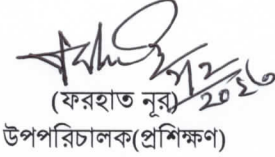 (ফরহাত নূর)
উপপরিচালক(প্রশিক্ষণ)